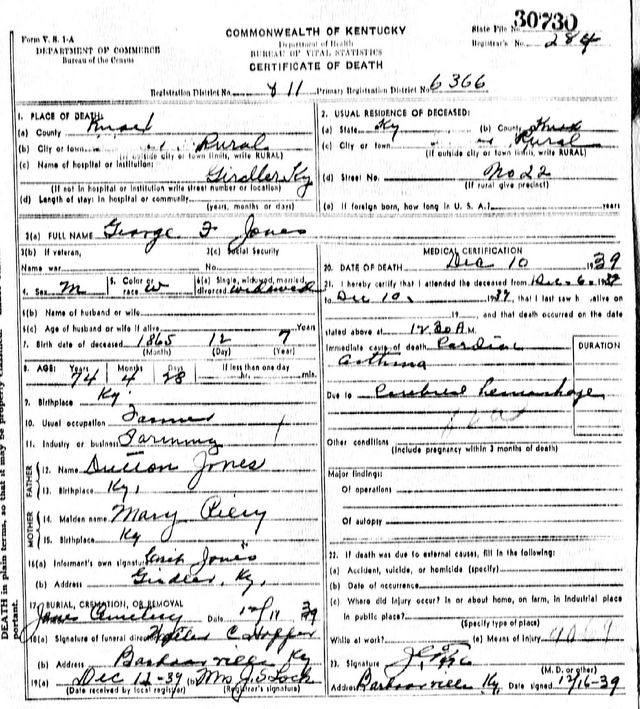 30730
Form V. S. 1-A
DEPARTMENT OF COMMERCE
Bureau of the Census
COMMONWEALTH OF KENTUCKY
Department of Health
BUREAU OF VITAL STATISTICS
CERTIFICATE OF DEATH
State File No.
Registrar's No. 284
Registration District No. 811 Primary Registration District No. 6366
1. PLACE OF DEATH:
(a) County Knox
(b) City or town Rural
(If outside city or town limits, write RURAL)
(c) Name of hospital or institution:
Girdler Ky
(If not in hospital or institution write street number or location)
(d) Length of stay: In hospital or community
(years, months or days)
2. USUAL RESIDENCE OF DECEASED:
(a) State Ky (b) County Knox
(c) City or town Rural
(If outside city or town limits, write RURAL)
(d) Street No. No 22
(If rural give precinct)
(e) If foreign born, how long in U. S. A.? years
3(a) FULL NAME George F Jones
3(b) If veteran, 3(c) Social Security
Name war No.
4. Sex M 5. Color or race W 6(a) Single, widowed, married, divorced widowed
6(b) Name of husband or wife
6(c) Age of husband or wife if alive Years
7. Birth date of deceased 1865 12 7
(Month) (Day) (Year)
8. AGE: Years Months Days If less than one day
74 4 28 hr. min.
9. Birthplace Ky.
10. Usual occupation Farmer
11. Industry or business Farming
FATHER
12. Name Dutton Jones
13. Birthplace Ky,
MOTHER
14. Maiden name Mary
15. Birthplace Ky
16(a) Informant's own signature Jones
(b) Address Girdler, Ky,
17. BURIAL, CREMATION, OR REMOVAL
Jones Cemetery Date 12/11 39
18(a) Signature of funeral director C Hopper
(b) Address Barbourville Ky
19(a) Dec 12-39 (b) Mrs J. S Lock
(Date received by local registrar) (Registrar's signature)
MEDICAL CERTIFICATION
20. DATE OF DEATH Dec 10 1939
21. I hereby certify that I attended the deceased from Dec. 6. 1939
to Dec 10, 1939, that I last saw h alive on
19, and that death occurred on the date
stated above at 12.30 A.M.
Immediate cause of death Cardiac DURATION
asthma
Due to Cerebral hemorrhage
Other conditions
(Include pregnancy within 3 months of death)
Major findings:
Of operations
Of autopsy
22. If death was due to external causes, fill in the following:
(a) Accident, suicide, or homicide (specify)
(b) Date of occurrence
(c) Where did injury occur? In or about home, on farm, in industrial place
in public place?
(Specify type of place)
While at work? (e) Means of injury
23. Signature
(M. D. or other)
Address Barbourville Ky Date signed 12/16-39
DEATH in plain terms, so that it may be properly classified.
portant.